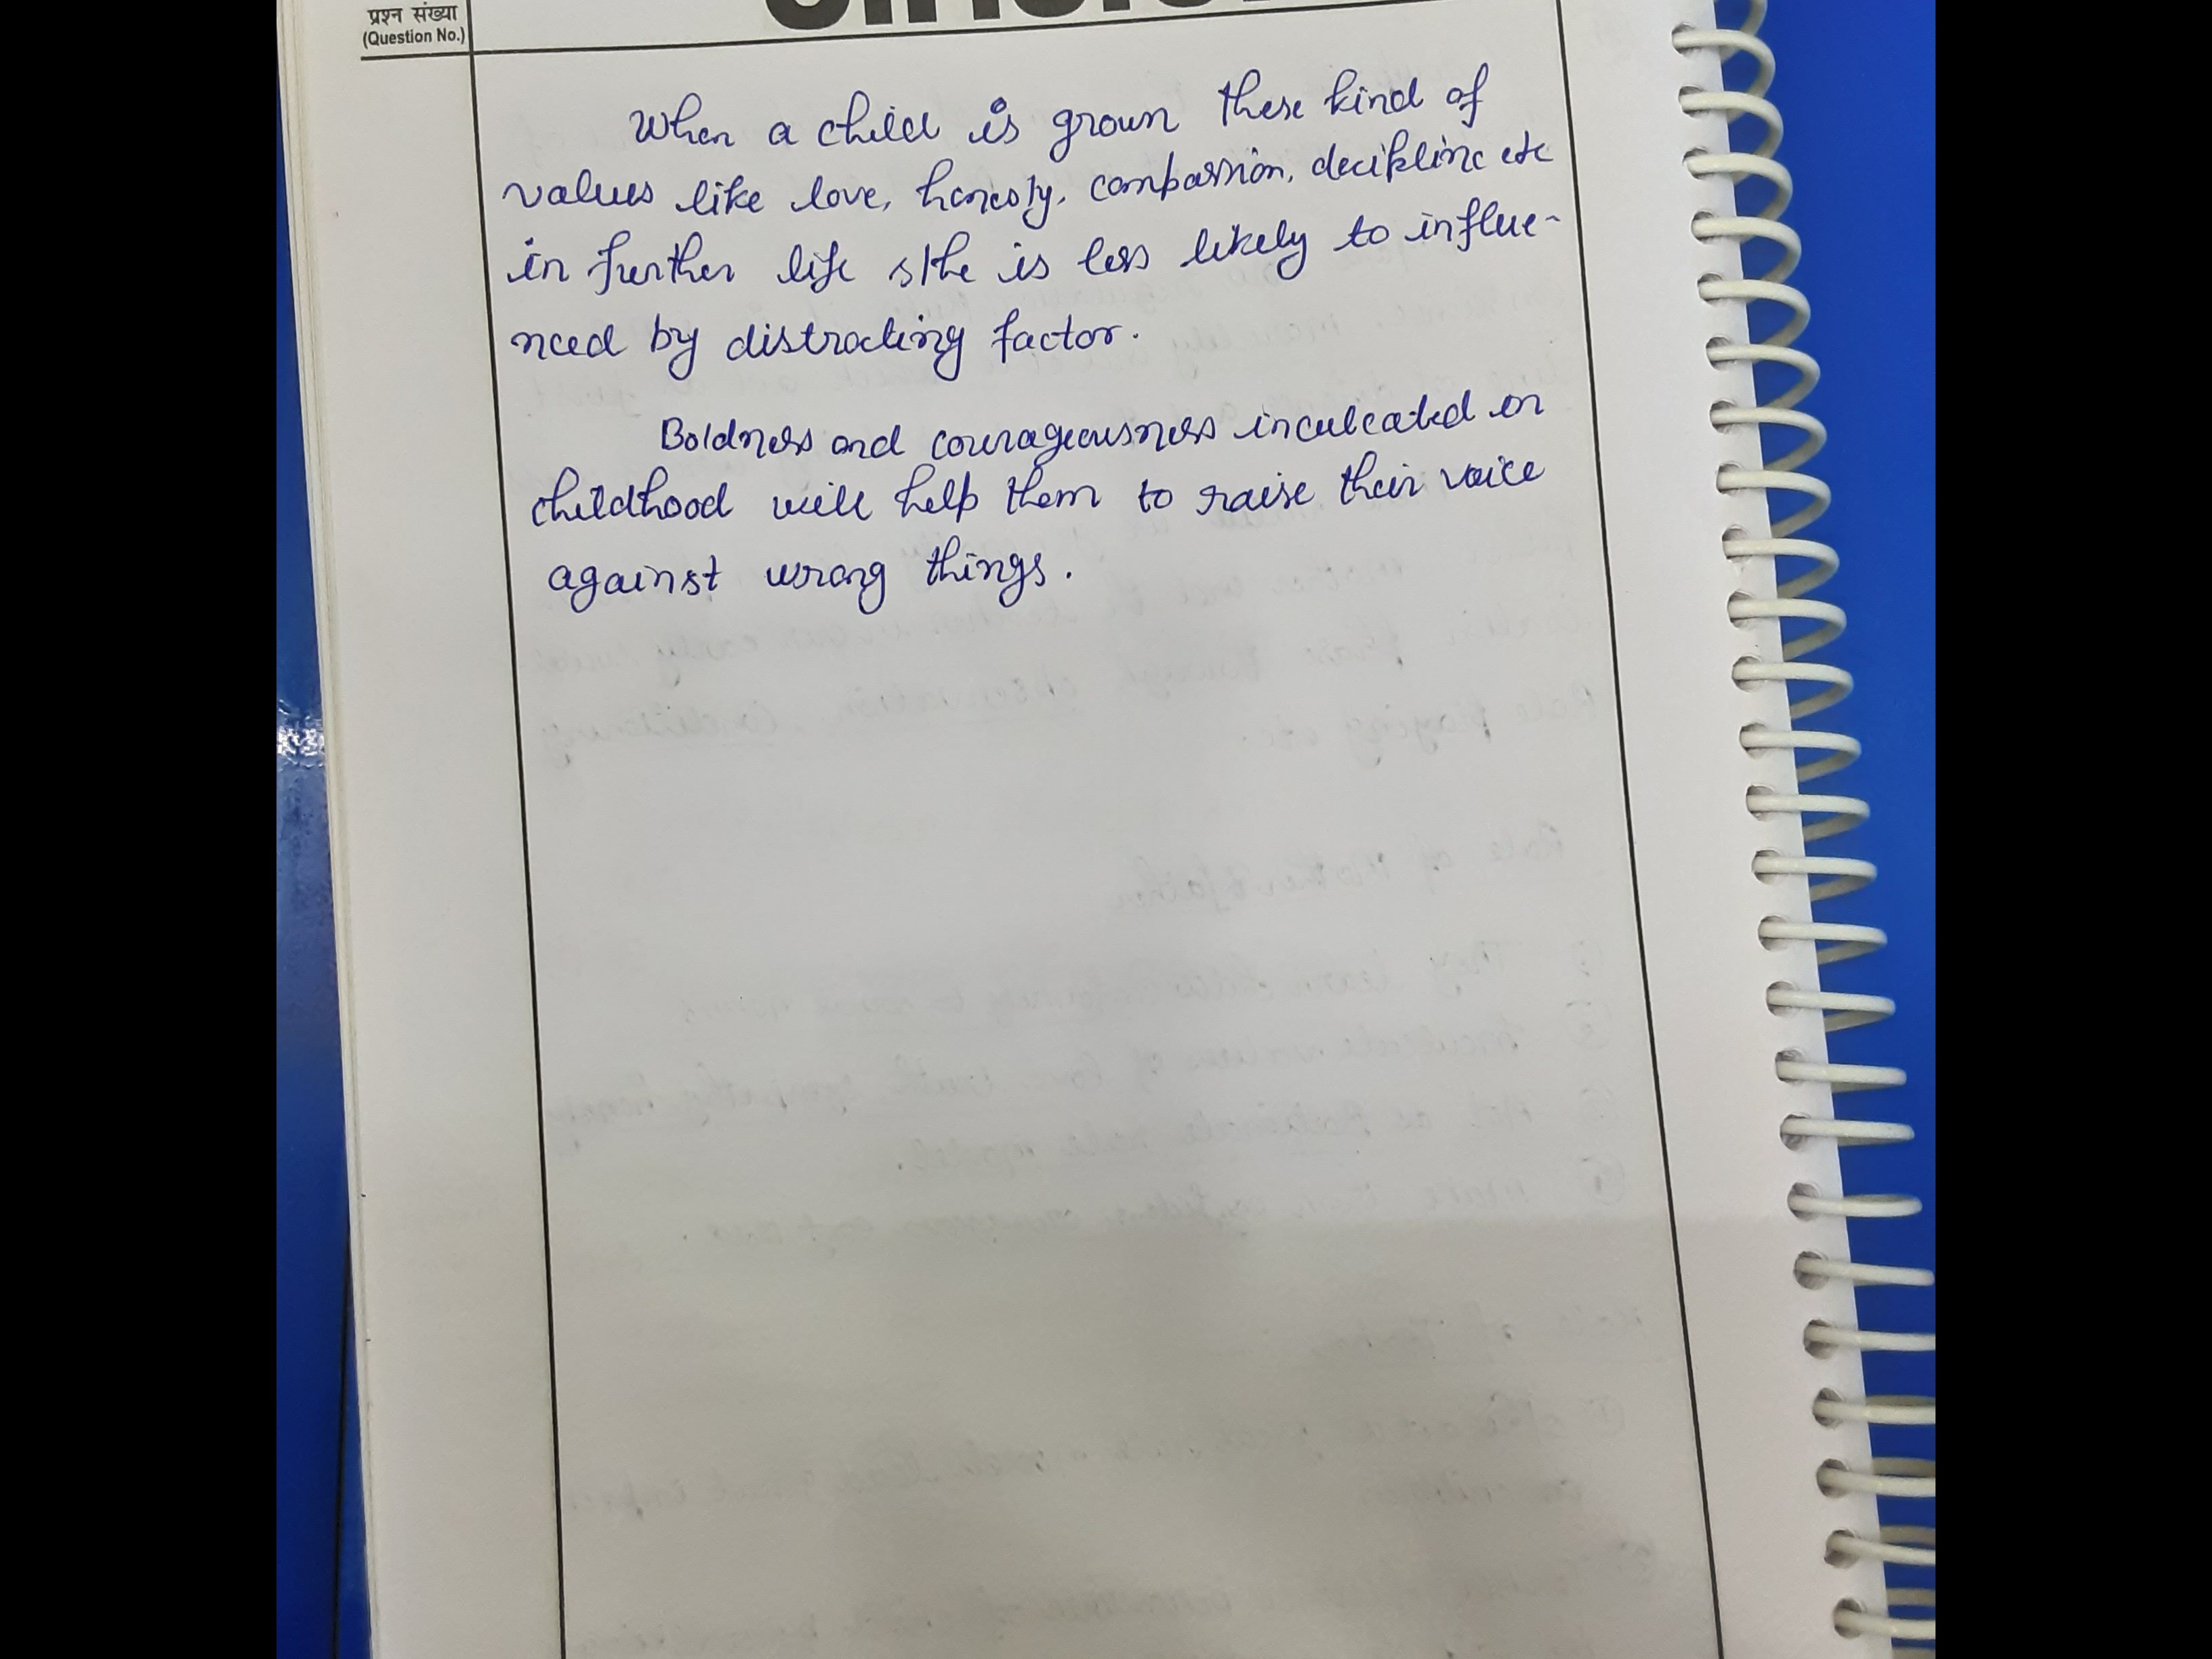 प्रश्न संख्या
(Question No.)
When a child is grown these kind of
values like love, honesty, compassion, decipline etc
in further life s/he is less likely to influe-
nced by distracting factor.
Boldness and courageousness inculcated in
childhood will help them to raise their voice
against wrong things.